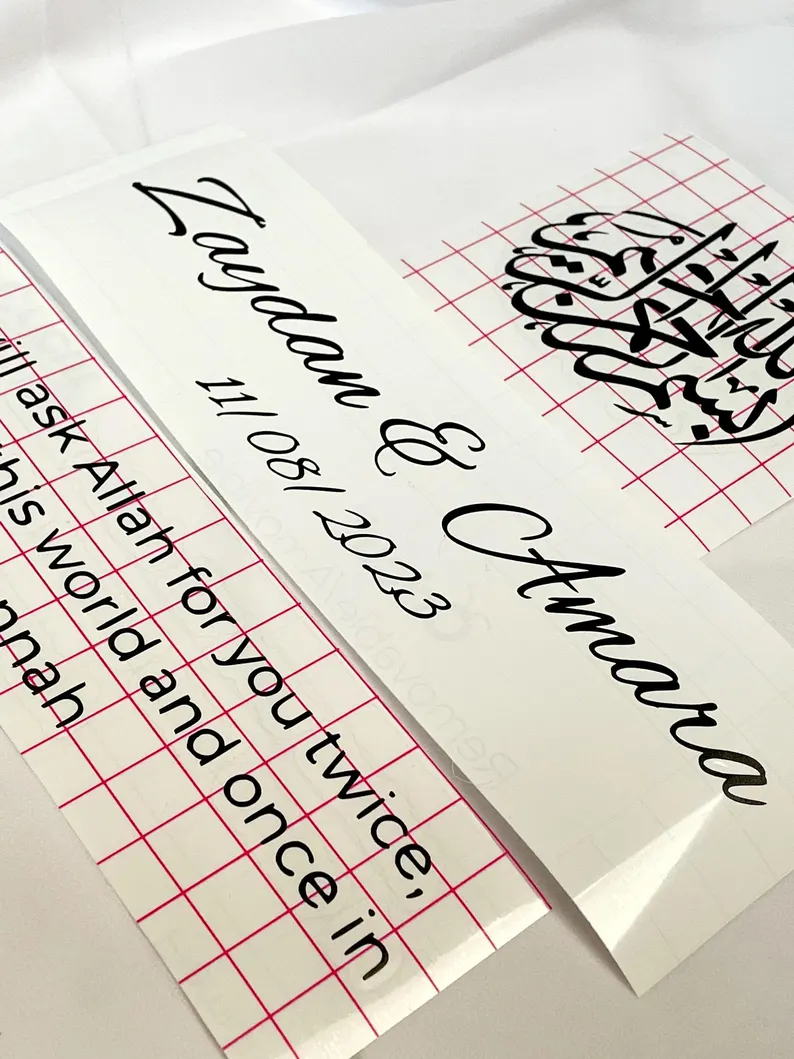 ill ask Allah for you twice,
his world and once in
nnah
Zaydan & Amara
11/08/2023
بسم الله الرحمن الرحيم